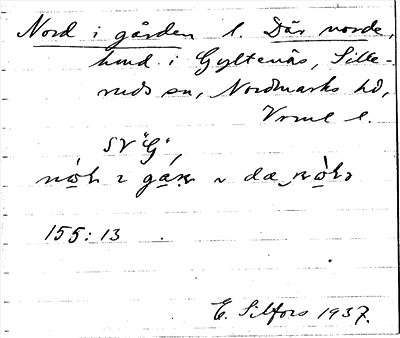 Nord i gården l. Där norde,
hmd. i Gyltenäs, Sille-
ruds sn, Nordmarks hd,
Vrml l.
SV "G",
155:13
E. Silfors 1937.